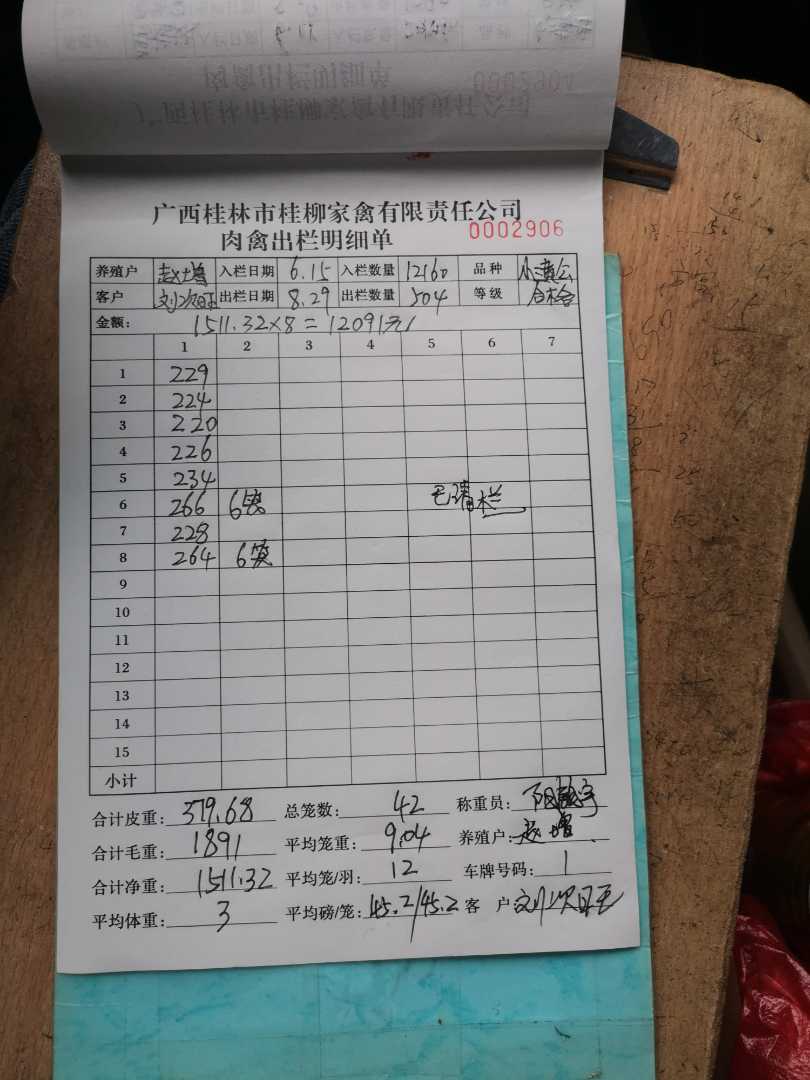 肉禽出栏明细单 0002904
广西桂林市桂柳家禽有限责任公司
广西桂林市桂柳家禽有限责任公司
肉禽出栏明细单 0002906
养殖户 赵增 入栏日期 6.15 入栏数量 12160 品种 小黄公
客户 刘次旺 出栏日期 8.29 出栏数量 504 等级 合格
金额: 1511.32×8=12091元
1 2 3 4 5 6 7
1 229
2 224
3 220
4 226
5 234
6 266 6 已清栏
7 228
8 264 6
9
10
11
12
13
14
15
小计
合计皮重: 379.68 总笼数: 42 称重员:
合计毛重: 1891 平均笼重: 9.04 养殖户: 赵增
合计净重: 1511.32 平均笼/羽: 12 车牌号码: 1
平均体重: 3 平均磅/笼: 45.2/45.2 客户 刘次旺